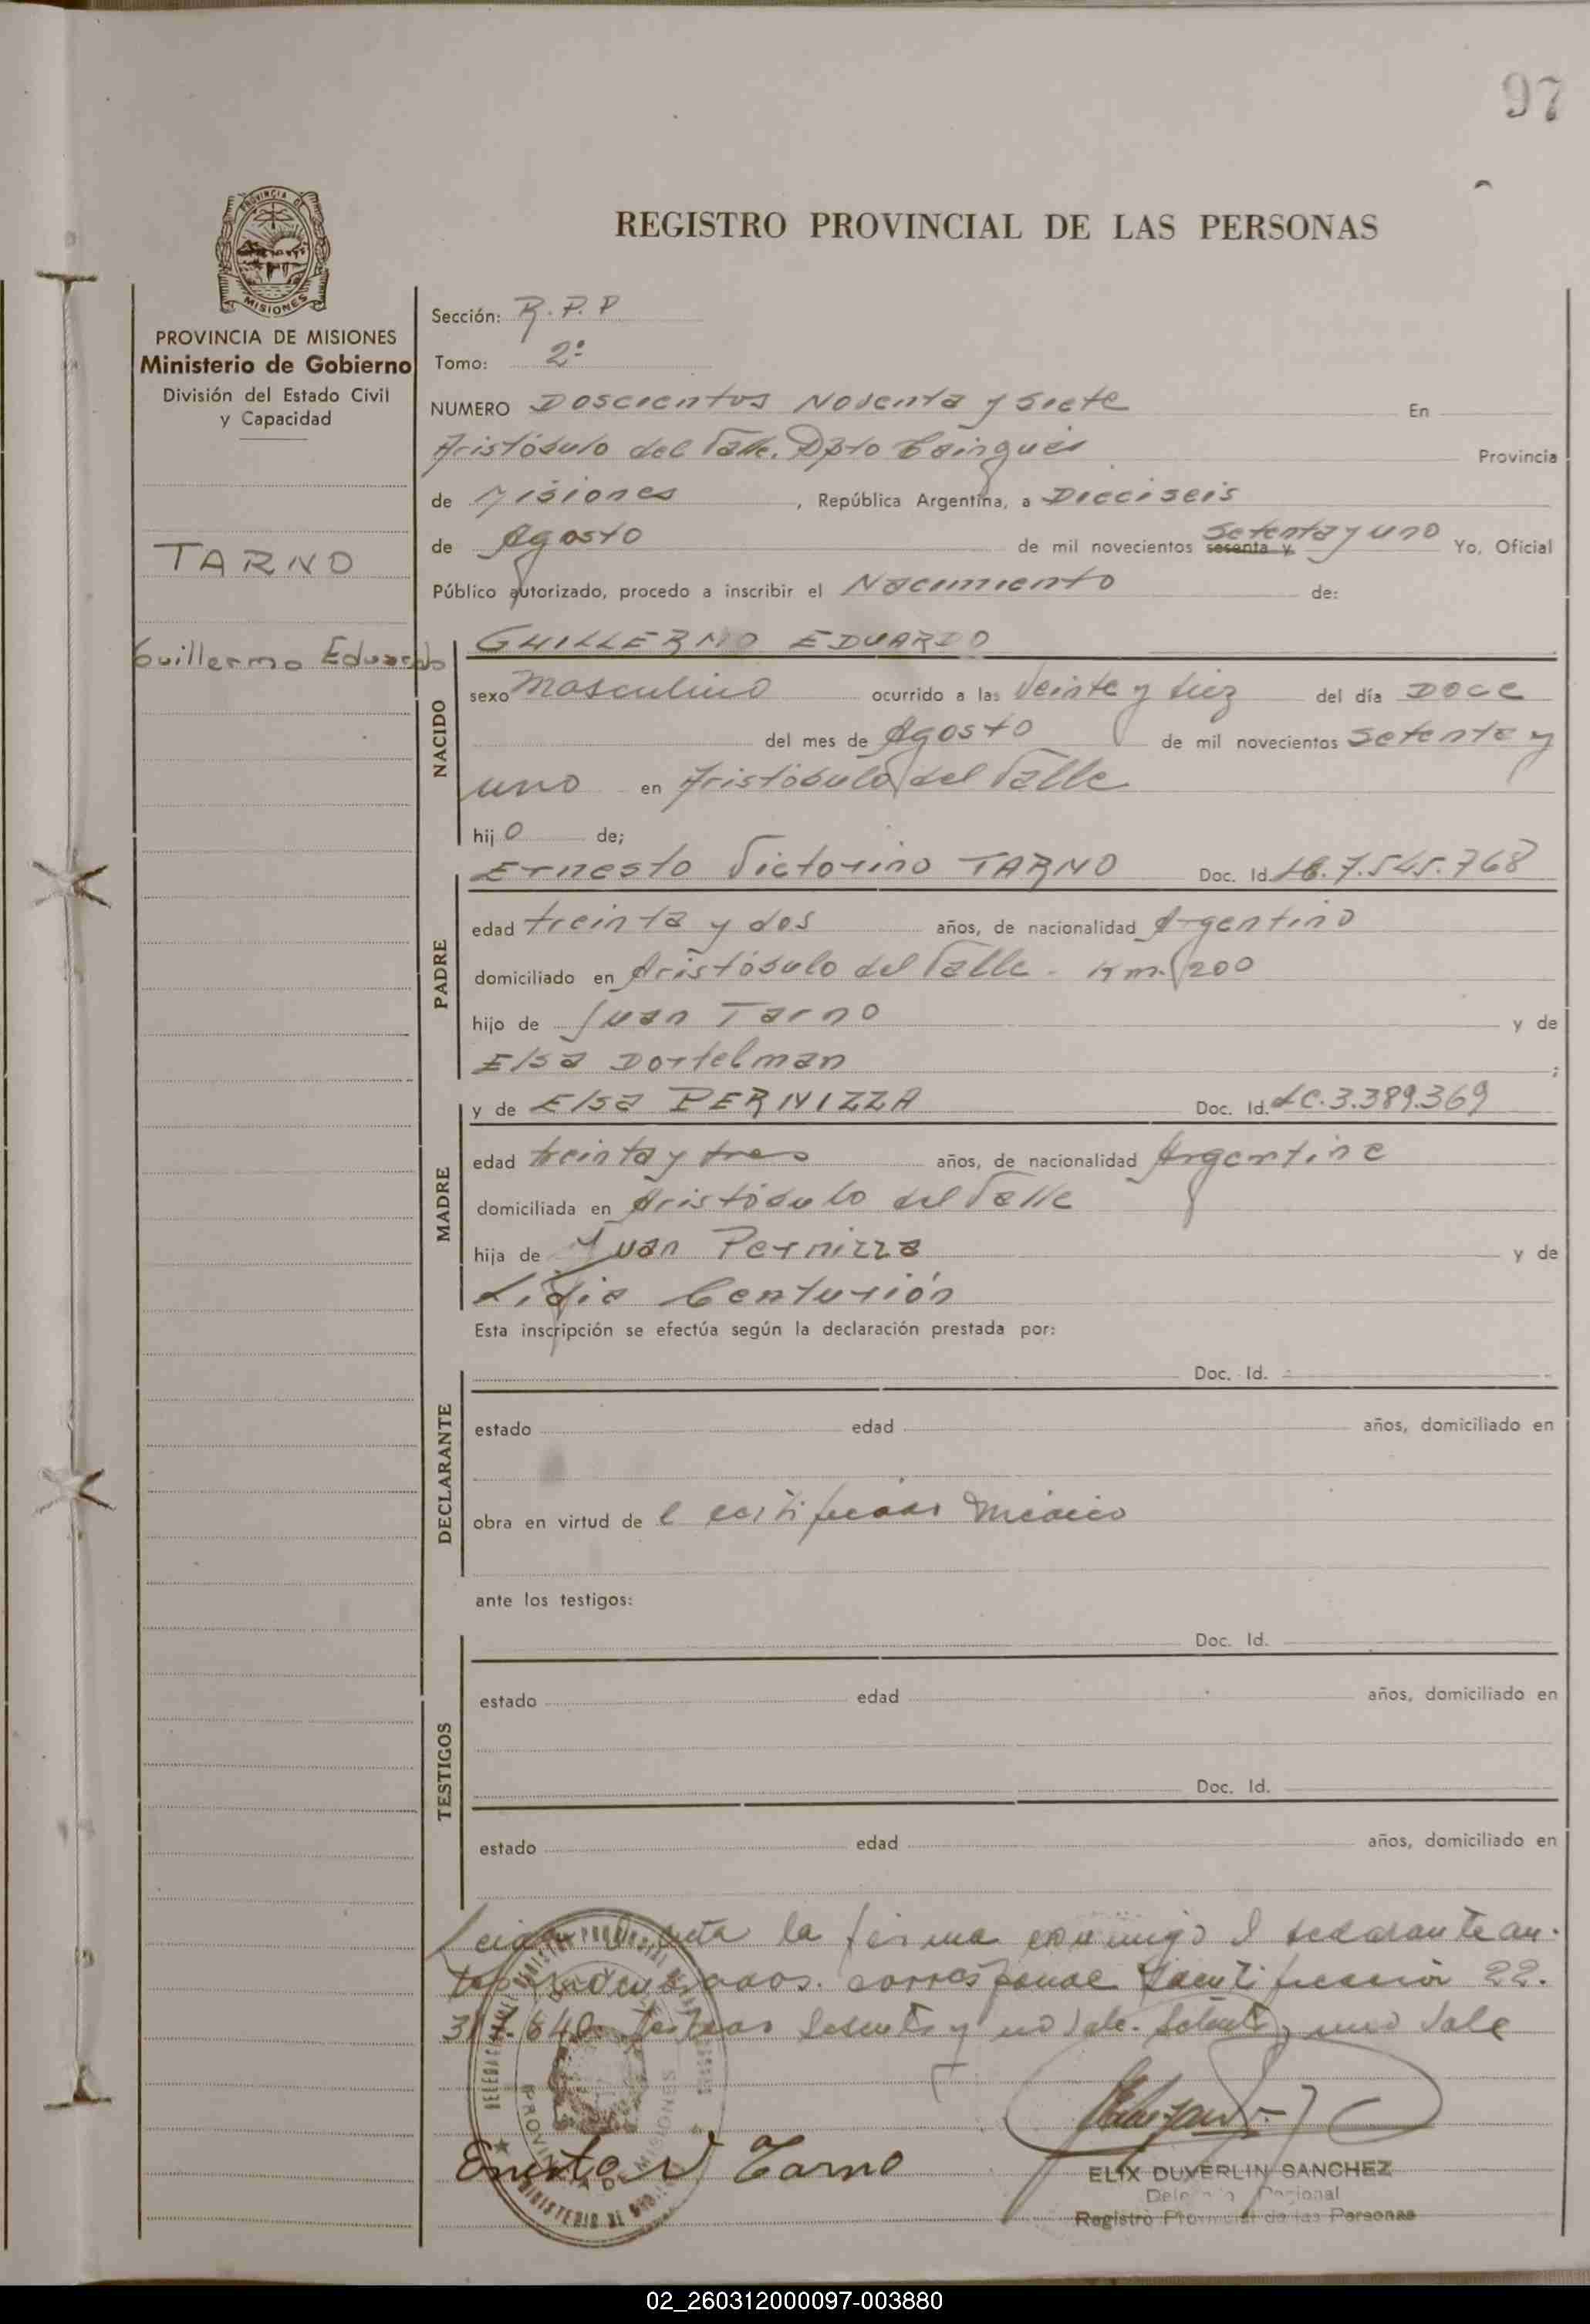 97
PROVINCIA DE
MISIONES
REGISTRO PROVINCIAL DE LAS PERSONAS
PROVINCIA DE MISIONES
Ministerio de Gobierno
División del Estado Civil
y Capacidad
TARNO
Guillermo Eduardo
Sección: R.P.P
Tomo: 2º
NUMERO Doscientos Noventa y siete En
Aristóbulo del Valle. Dpto Cainguás Provincia
de Misiones, República Argentina, a Dieciseis
de Agosto de mil novecientos sesenta y setenta y uno Yo, Oficial
Público autorizado, procedo a inscribir el Nacimiento de:
NACIDO
GUILLERMO EDUARDO
sexo Masculino ocurrido a las Veinte y diez del día Doce
del mes de Agosto de mil novecientos setenta y
uno en Aristóbulo del Valle
hijo de;
PADRE
Ernesto Victorino TARNO Doc. Id. 7.545.768
edad treinta y dos años, de nacionalidad Argentino
domiciliado en Aristóbulo del Valle - Km. 200
hijo de Juan Tarno y de
Elsa Dortelman ;
MADRE
y de Elsa PERNIZZA Doc. Id. LC.3.389.369
edad treinta y tres años, de nacionalidad Argentina
domiciliada en Aristóbulo del Valle
hija de Juan Pernizza y de
Lidia Centurión
Esta inscripción se efectúa según la declaración prestada por:
DECLARANTE
Doc. Id.
estado edad años, domiciliado en
obra en virtud del certificado Médico
ante los testigos:
TESTIGOS
Doc. Id.
estado edad años, domiciliado en
Doc. Id.
estado edad años, domiciliado en
Leida el acta la firma conmigo el declarante an-
corresponde identificación 22.
Sesenta y no Vale. Setenta y uno Vale
PROVINCIA DE MISIONES
Ernesto V Tarno
ELIX DUVERLIN SANCHEZ
Registro Provincial de las Personas
02_260312000097-003880